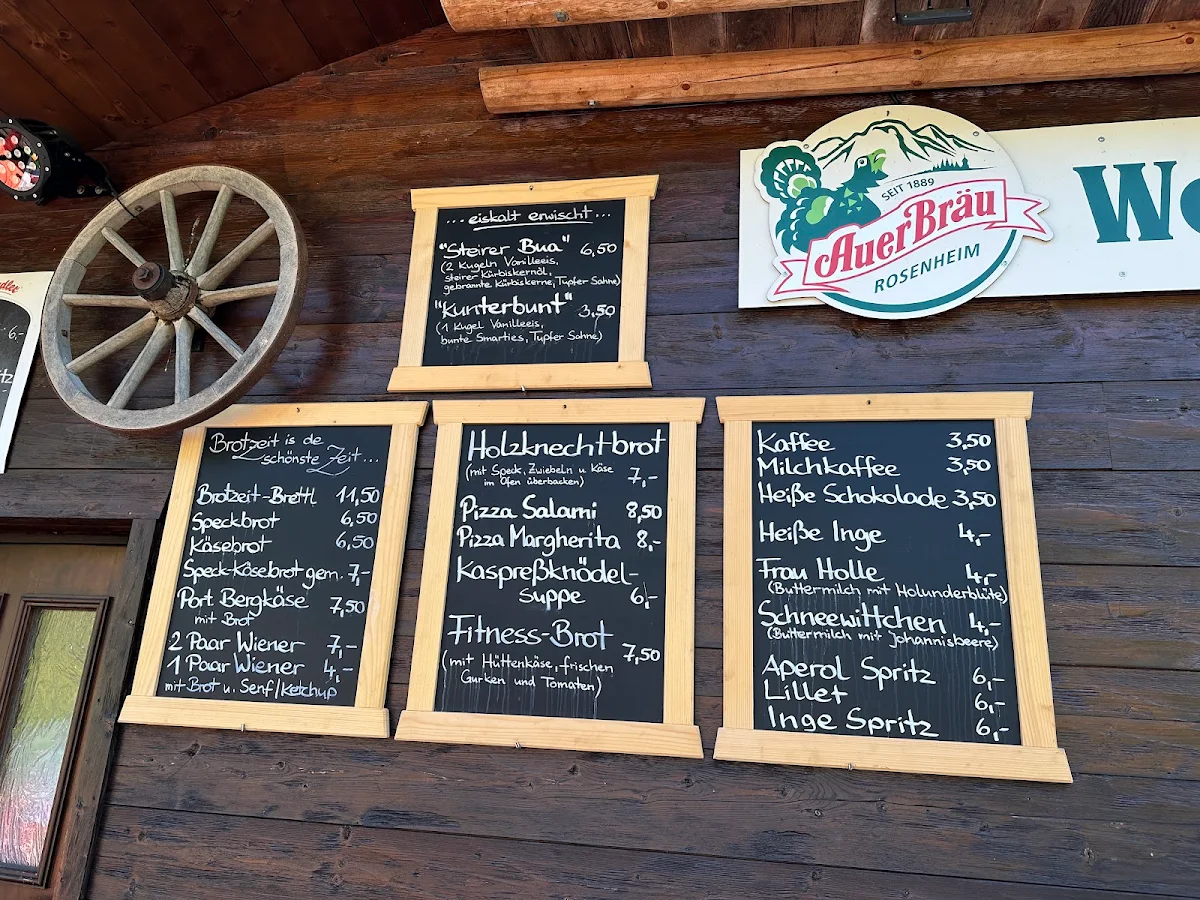 ... eiskalt erwischt ...
"Steirer Bua" 6,50
(2 Kugeln Vanilleeis,
steirer Kürbiskernöl,
gebrannte Kürbiskerne, Tupfer Sahne)
"Kunterbunt" 3,50
(1 Kugel Vanilleeis,
bunte Smarties, Tupfer Sahne)
SEIT 1889
AuerBräu
ROSENHEIM
We
6,-
Brotzeit is de
schönste Zeit...
Brotzeit-Brettl 11,50
Speckbrot 6,50
Käsebrot 6,50
Speck-Käsebrot gem. 7,-
Port. Bergkäse 7,50
mit Brot
2 Paar Wiener 7,-
1 Paar Wiener 4,-
mit Brot u. Senf/Ketchup
Holzknechtbrot
(mit Speck, Zwiebeln u Käse 7,-
im Ofen überbacken)
Pizza Salami 8,50
Pizza Margherita 8,-
Kaspreßknödel-
suppe 6,-
Fitness-Brot 7,50
(mit Hüttenkäse, frischen
Gurken und Tomaten)
Kaffee 3,50
Milchkaffee 3,50
Heiße Schokolade 3,50
Heiße Inge 4,-
Frau Holle 4,-
(Buttermilch mit Holunderblüte)
Schneewittchen 4,-
(Buttermilch mit Johannisbeere)
Aperol Spritz 6,-
Lillet 6,-
Inge Spritz 6,-